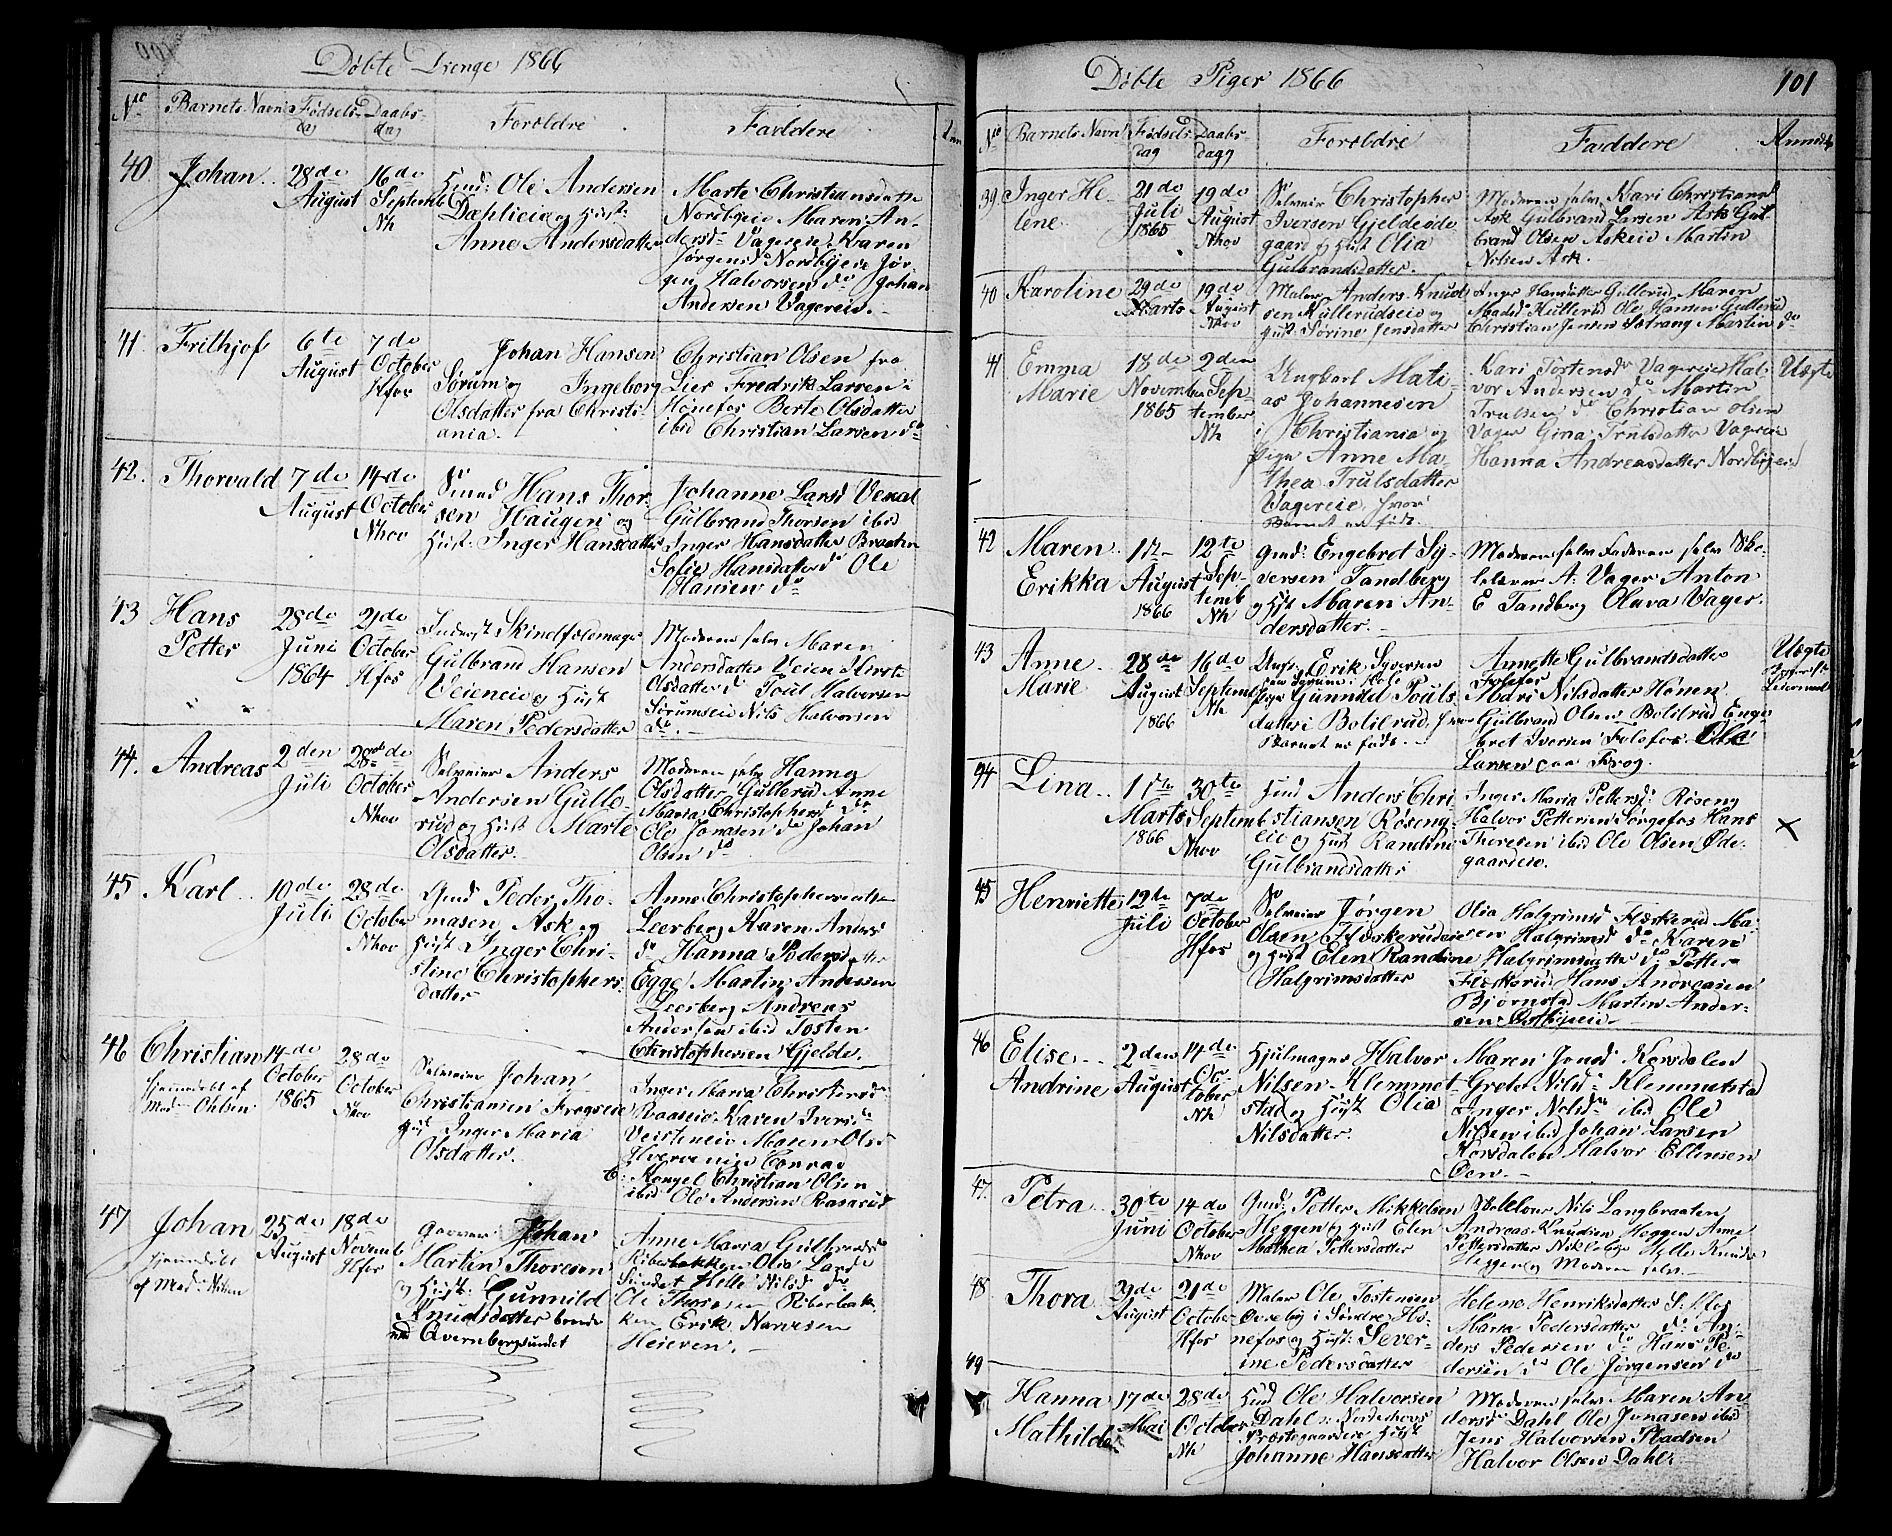 Døbte Drenge 1866
No Barnets Navn Fødselsdag Daabsdag Forældre Faddere
40. Johan.. 28de August 16de Septemb Nh
Huusm: Ole Andersen
Dæhlieie og Hust:
Anne Andersdatter
Marte Christiansdatter
Nordbyeie Maren An-
dersd: Vagereie Karen
Jørgensd Nordbyeie Jør-
gen Halvorsen do Johan
Andersen Vagereie.-
41. Frithjof 6te August 7de October Hfos
Johan Hansen
Sørum og Ingeborg
Olsdatter fra Christi-
ania.
Christian Olsen fra
Lier Fredrik Larsen i
Hønefos Berte Olsdatter
ibid Christian Larsen do
42. Thorvald 7de August 14de October Nhov
Smed Hans Thor-
sen Haugen og
Hust: Inger Hansdatter
Johanne Larsd
Gulbrand Thorsen ibid
Inger Hansdatter Braaten
Sofie Hansdatter do Ole
Hansen do
43 Hans Petter 28de Juni 1864 21de October Hfos
Gulbrand Hansen
Veieneie og Hust
Maren Pedersdatter
Moderen selv Maren
Andersdatter Veien
Olsdatter do Poul Halvorsen
Sørumseie Nils Halvorsen
do.-
44. Andreas 2den Juli 28de October Nhov
Selveier Anders
Andersen Gulle-
rud og Hust Marte
Olsdatter.
Moderen selv Hanna
Olsdatter Gullerud Anne
Maria Christophersd do
Ole Jonasen do Johan
Olsen do
45 Karl .. 10de Juli 28de October Nhov
Gmd Peder Tho-
masen Ask og
Hust Inger Chri-
stine Christophers-
datter
Anne Christophersdatter
Leerberg Karen Anders
do Hanna Pedersdatter
Egge Martin Andersen
Leerberg Andreas
Andersen ibid Tosten
Christophersen Gjelde.
46 Christian 14de October 1865 28de October Nhov
hjemmedøbt af
Mad Ohlsen
Selveier Johan
Christiansen Frogseie
Hust Inger Maria
Olsdatter.
Inger Maria Christensd
Karen Iversd
Veisteneie Maren Olsd
Conrad
Mongel Christian Olsen
ibid Ole Andersen
47 Johan 25de August 18de Novemb Hfos
hjemmedøbt
af Mad: Nilsen
Johan
Martin Thoresen
og Hust: Gunnild
Knudsdatter boende
ved Qvernbergsundet
Anne Maria Gulbrandsd
Riberbakken Olia Larsd
Sundet Helle Nilsd do
Ole Thoresen Riberbak-
ken, Erik Narvesen
Heieren.-
Døbte Piger 1866
101
No Barnets Navn Fødselsdag Daabsdag Forældre Faddere
39 Inger Helene. 21de Juli 1865 19de August Nhov
Selveier Christopher
Iversen Gjeldeøde-
gaard og Hust Olia
Gulbrandsdatter.
Moderen selv Kari Christiansd
Ask Gulbrand Larsen Ask Gul-
brand Olsen Askeie Martin
Nilsen Ask.
40 Karoline 29de Marts 19de August Nhov
Maler Anders Knud-
sen Kullerudseie og
Hust. Sørine Jensdatter
Inger Hansdatter Gullerud Maren
Madsd Kullerud Ole Hansen Gullerud
Christian Jensen Martin do
41 Emma Marie 18de November 1865 2den September Nh
Ungkarl Mati-
as Johannesen
i Christiania og
Pige Anne Ma-
thea Trulsdatter
Vagereie hvor
Barnet er født.
Kari Tostensd Vagereie Hal-
vor Andersen do Martin
Trulsen do Christian Olsen
Vager Gina Trulsdatter Vagereie
Hanna Andreasdatter Nordbyeie
Uægte
42 Maren Erikka 1ste August 1866 12te Septemb Nh
Gmd: Engebret Sy-
versen Tandberg
og Hust Maren An-
dersdatter.-
Moderen selv Faderen selv Skole-
lærer A: Vager Anton
E Tandberg Olava Vager.
43 Anne Marie 28de August 1866 16de Septemb Nh
Ungk: Erik Syversen
Pige Gunnild Pouls-
datter i Bolilrud, hvor
Barnet er født.-
Annette Gulbrandsdatter
Follofos
Mari Nilsdatter Hønen
Gulbrand Olsen Bolilrud Enge-
bret Iversen Follofos Ole
Larsen paa Frog.
Uægte
44 Lina.. 1ste Marts 1866 30te Septemb Nhov
Huusmd Anders Chri-
stiansen Røseng-
eie og Hust Randine
Gulbrandsdatter
Inger Maria Pettersd: Røseng
Halvor Pettersen Sørgefos Hans
Thoresen ibid Ole Olsen Øde-
gaardeie.
X
45 Henriette 12te Juli 7de October Hfos
Selveier Jørgen
Olsen Flaskerudeie
og Hust Elen Randine
Halgrimsdatter
Olia Halgrimsd Flaskerud Ma-
ren Halgrimsd do Karen
Halgrimsdatter do Petter
Flaskerud Hans Andreasen
Bjørnstad Martin Ander-
sen Østbyeie-
46 Elise Andrine 2den August 14de October Nh
Hjulmager Halvor
Nilsen Klemmet-
stad og Hust Olia
Nilsdatter.
Maren Jonsd Korsdalen
Grete Nilsd Klemmetstad
Inger Nilsd ibid Ole
Nilsen ibid Johan Larsen
Korsdalen Halvor Ellensen
Øen.-
47. Petra.. 30te Juni 14de October Nhov
Gmd: Petter Mikkelsen
Heggen og Hust Elen
Mathea Pettersdatter
Skolelærer Nils Langbraaten
Andreas Knudsen Heggen Anne
Pettersdatter Nikleby Helle Knudsd
Heggen og Moderen selv.-
48 Thora. 29de August 21de October Hfos
Maler Ole Tostensen
Øvreby i Søndre Hø-
nefos og Hust: Sever-
ine Pedersdatter
Helene Henriksdatter S: Hfos
Maria Pedersdatter do An-
ders Pedersen do Hans Pe-
dersen do Ole Jørgensen do
49 Hanna Mathilde 17de Mai 28de October Nh
Huusmd Ole Halvorsen
Dahl: Norderhovs
Præstegaardeie Hust
Johanne Hansdatter
Moderen selv Maren An-
dersd Dahl Ole Jonasen ibid
Jens Halvorsen Pladsen
Halvor Olsen Dahl.